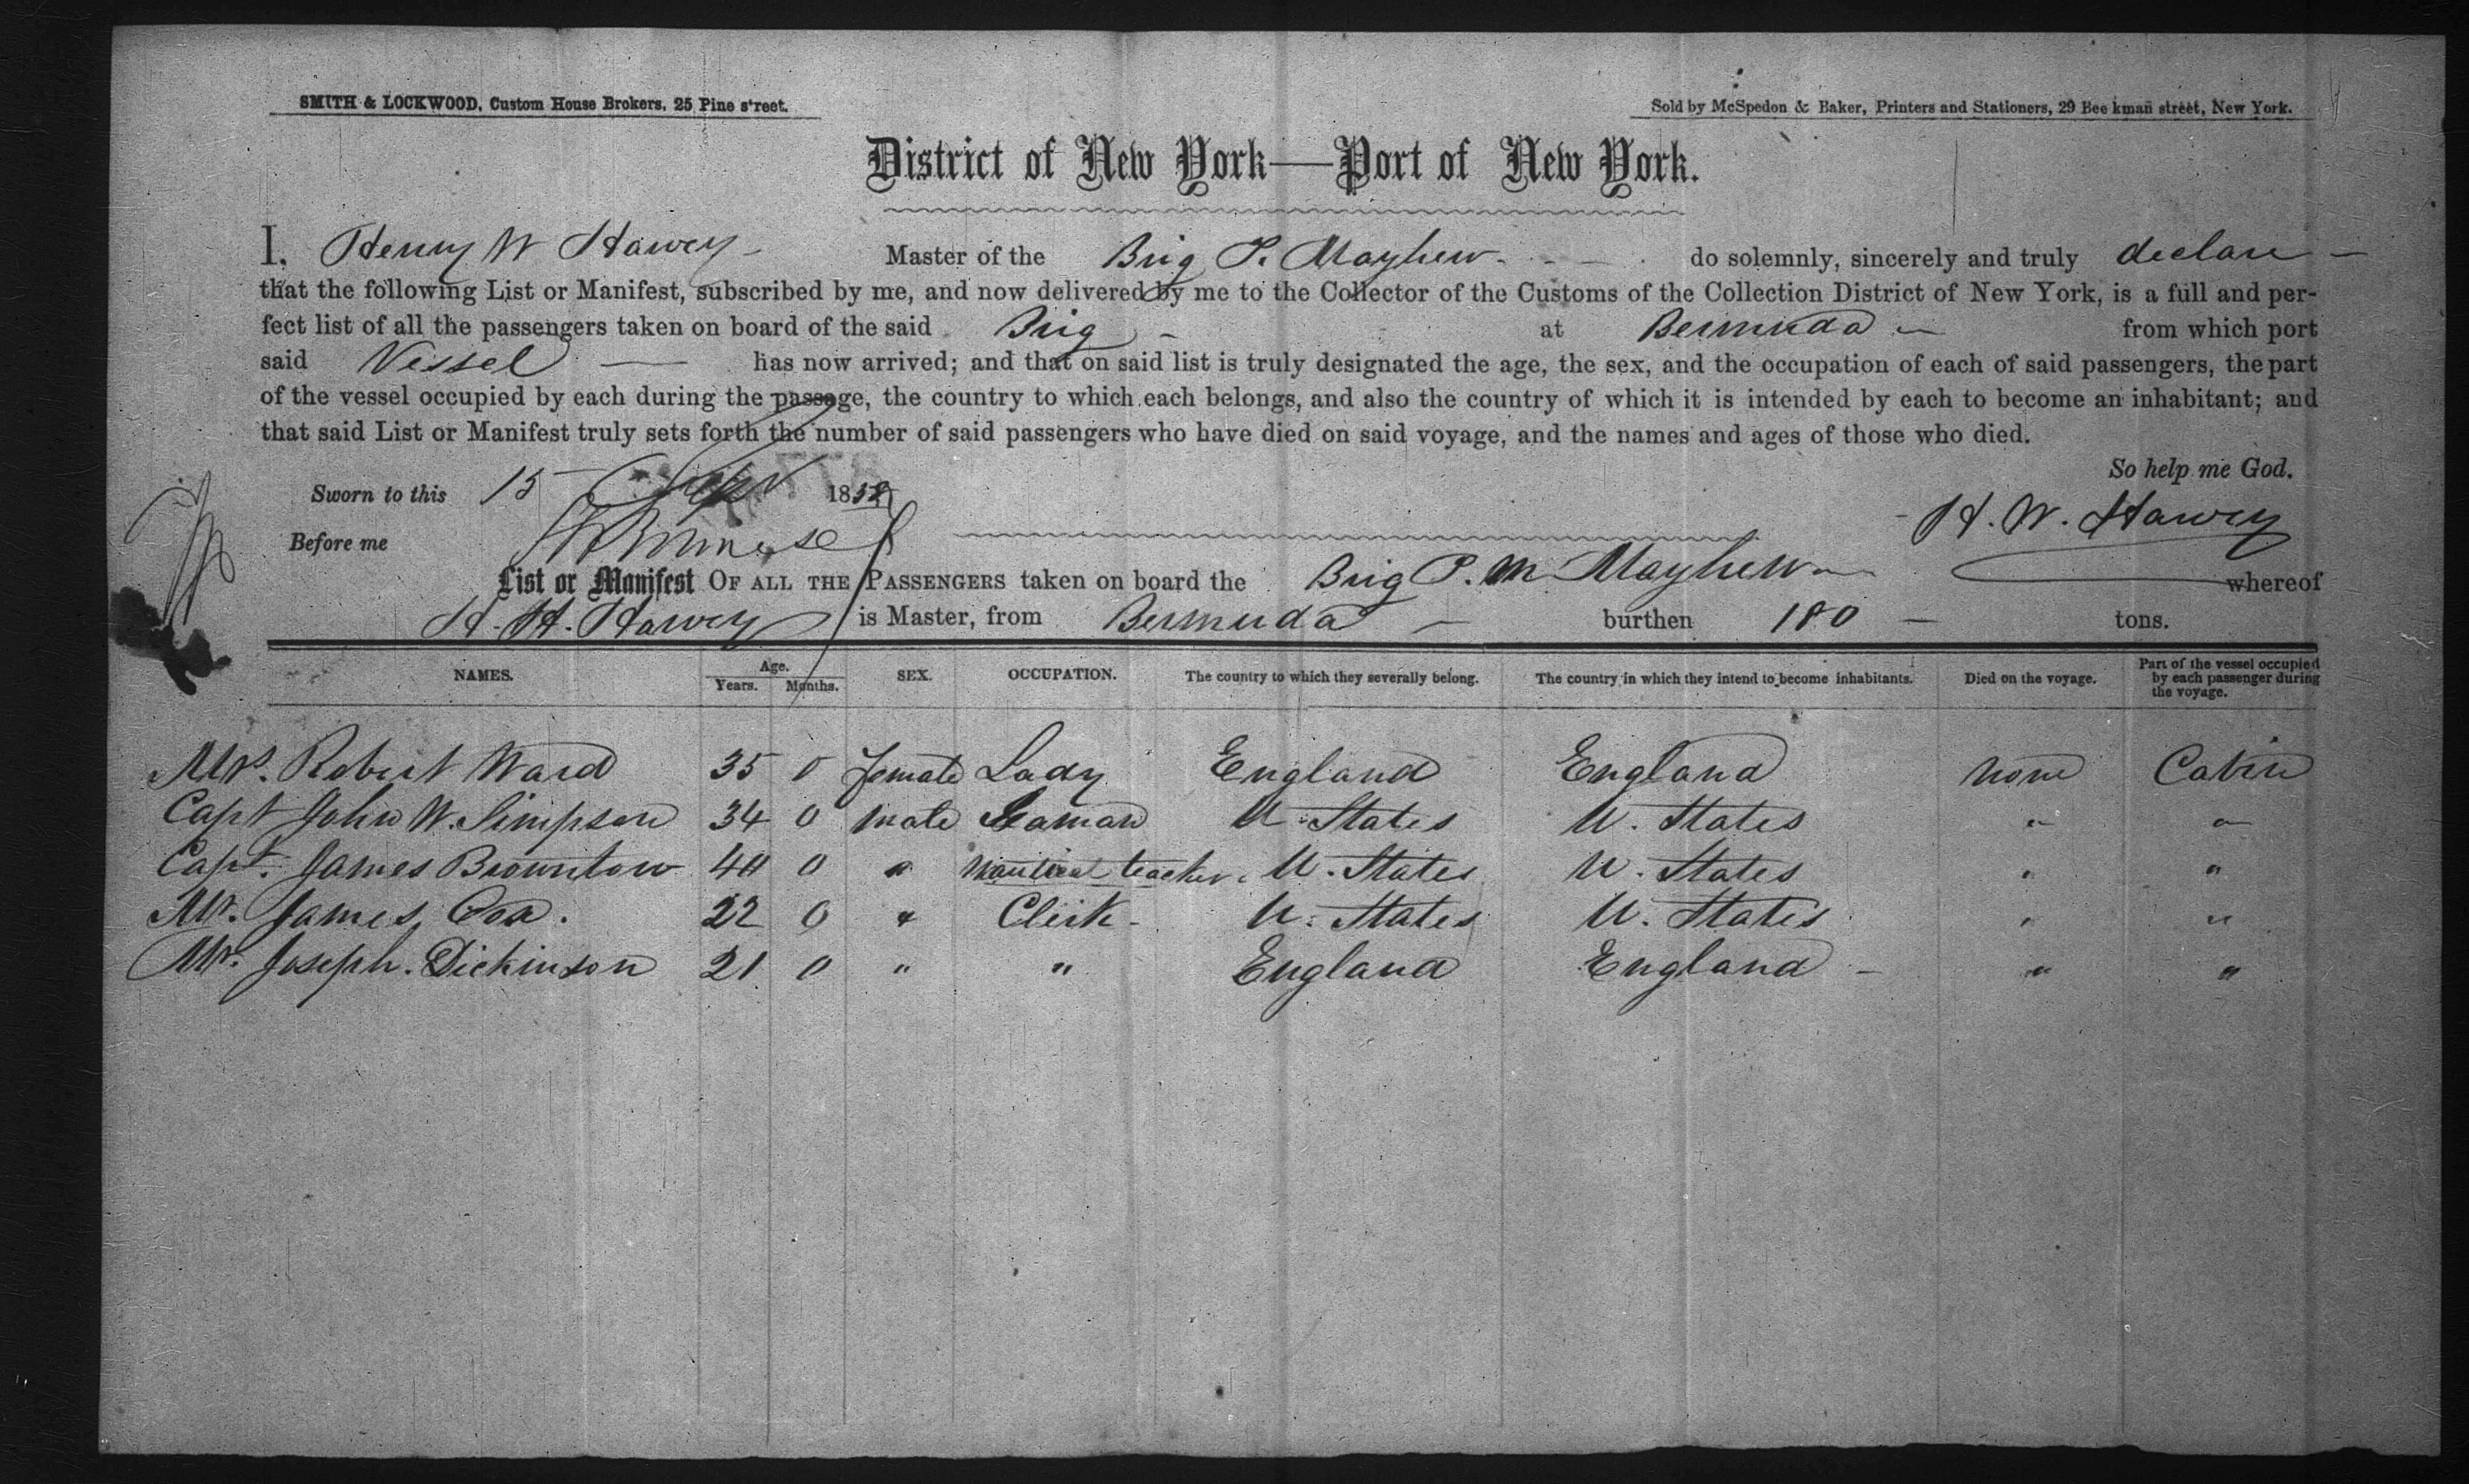 SMITH & LOCKWOOD, Custom House Brokers, 25 Pine street.
Sold by McSpedon & Baker, Printers and Stationers, 29 Beekman street, New York.
District of New York—Port of New York.
I, Henry W Hawey Master of the Brig P. Mayhew do solemnly, sincerely and truly declare
that the following List or Manifest, subscribed by me, and now delivered by me to the Collector of the Customs of the Collection District of New York, is a full and per-
fect list of all the passengers taken on board of the said Brig at Bermuda from which port
said Vessel has now arrived; and that on said list is truly designated the age, the sex, and the occupation of each of said passengers, the part
of the vessel occupied by each during the passage, the country to which each belongs, and also the country of which it is intended by each to become an inhabitant; and
that said List or Manifest truly sets forth the number of said passengers who have died on said voyage, and the names and ages of those who died.
So help me God.
Sworn to this 15 Sepr 1858
H. W. Hawey
Before me
List or Manifest OF ALL THE PASSENGERS taken on board the Brig P. M Mayhew whereof
H. H. Hawey is Master, from Bermuda burthen 180 tons.
NAMES. Age. Years. Months. SEX. OCCUPATION. The country to which they severally belong. The country in which they intend to become inhabitants. Died on the voyage. Part of the vessel occupied by each passenger during the voyage.
Mrs. Robert Ward 35 0 female Lady England England none Cabin
Capt John W. Simpson 34 0 male Seaman U. States U. States " "
Capt. James Brownlow 40 0 " Nautical teacher. U. States U. States " "
Mr. James Cox. 22 0 " Clerk U. States U. States " "
Mr. Joseph. Dickinson 21 0 " " England England " "